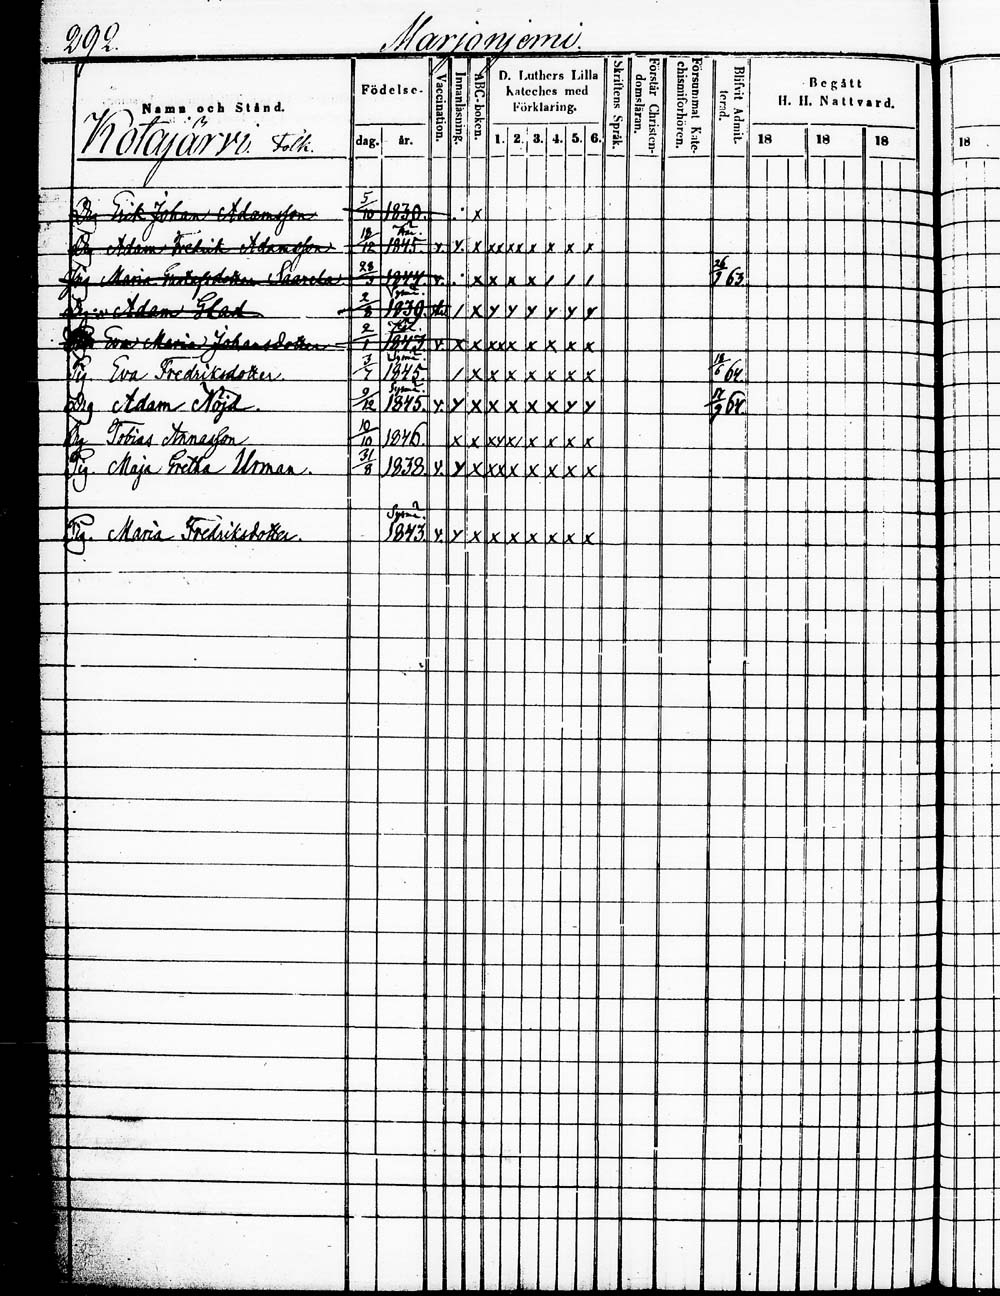 292. Marjonjemi.
Namn och Stånd. Födelse- dag. år. Vaccination. Innanläsning. ABC-boken. D. Luthers Lilla Kateches med Förklaring. 1. 2. 3. 4. 5. 6. Skriftens Språk. Förstår Christendomsläran. Försummat Katechismiförhören. Blifvit Admitterad. Begått H. H. Nattvard. 18 18 18 18
Kotajärvi Folk.
Drg Erik Johan Adamsson 5/10 1830. x
Drg Adam Fredrik Adamsson 18/12 1845. v. y. x xx xx x x x x
Pig Maria Gustafsdotter Saarela 28/3 1844. v. x x x x / / / 26/9 63.
Adam Glad 2/8 1839. / x y y y y y y
Eva Maria Johansdotter 2/1 1847. v. x x xx x x x x x
Pig. Eva Fredriksdotter. 3/7 1845. / x x x x x x x 18/6 64.
Drg Adam Nöjd. 9/12 1845. v. y x x x x x y y 17/9 64.
Dg Tobias Annasson 10/10 1846. x x xy x/ x x x x
Pig Maja Gretha Urman. 31/8 1838. v. y x xx x x x x x
Pig. Maria Fredriksdotter. 1843. v. y x x x x x x x